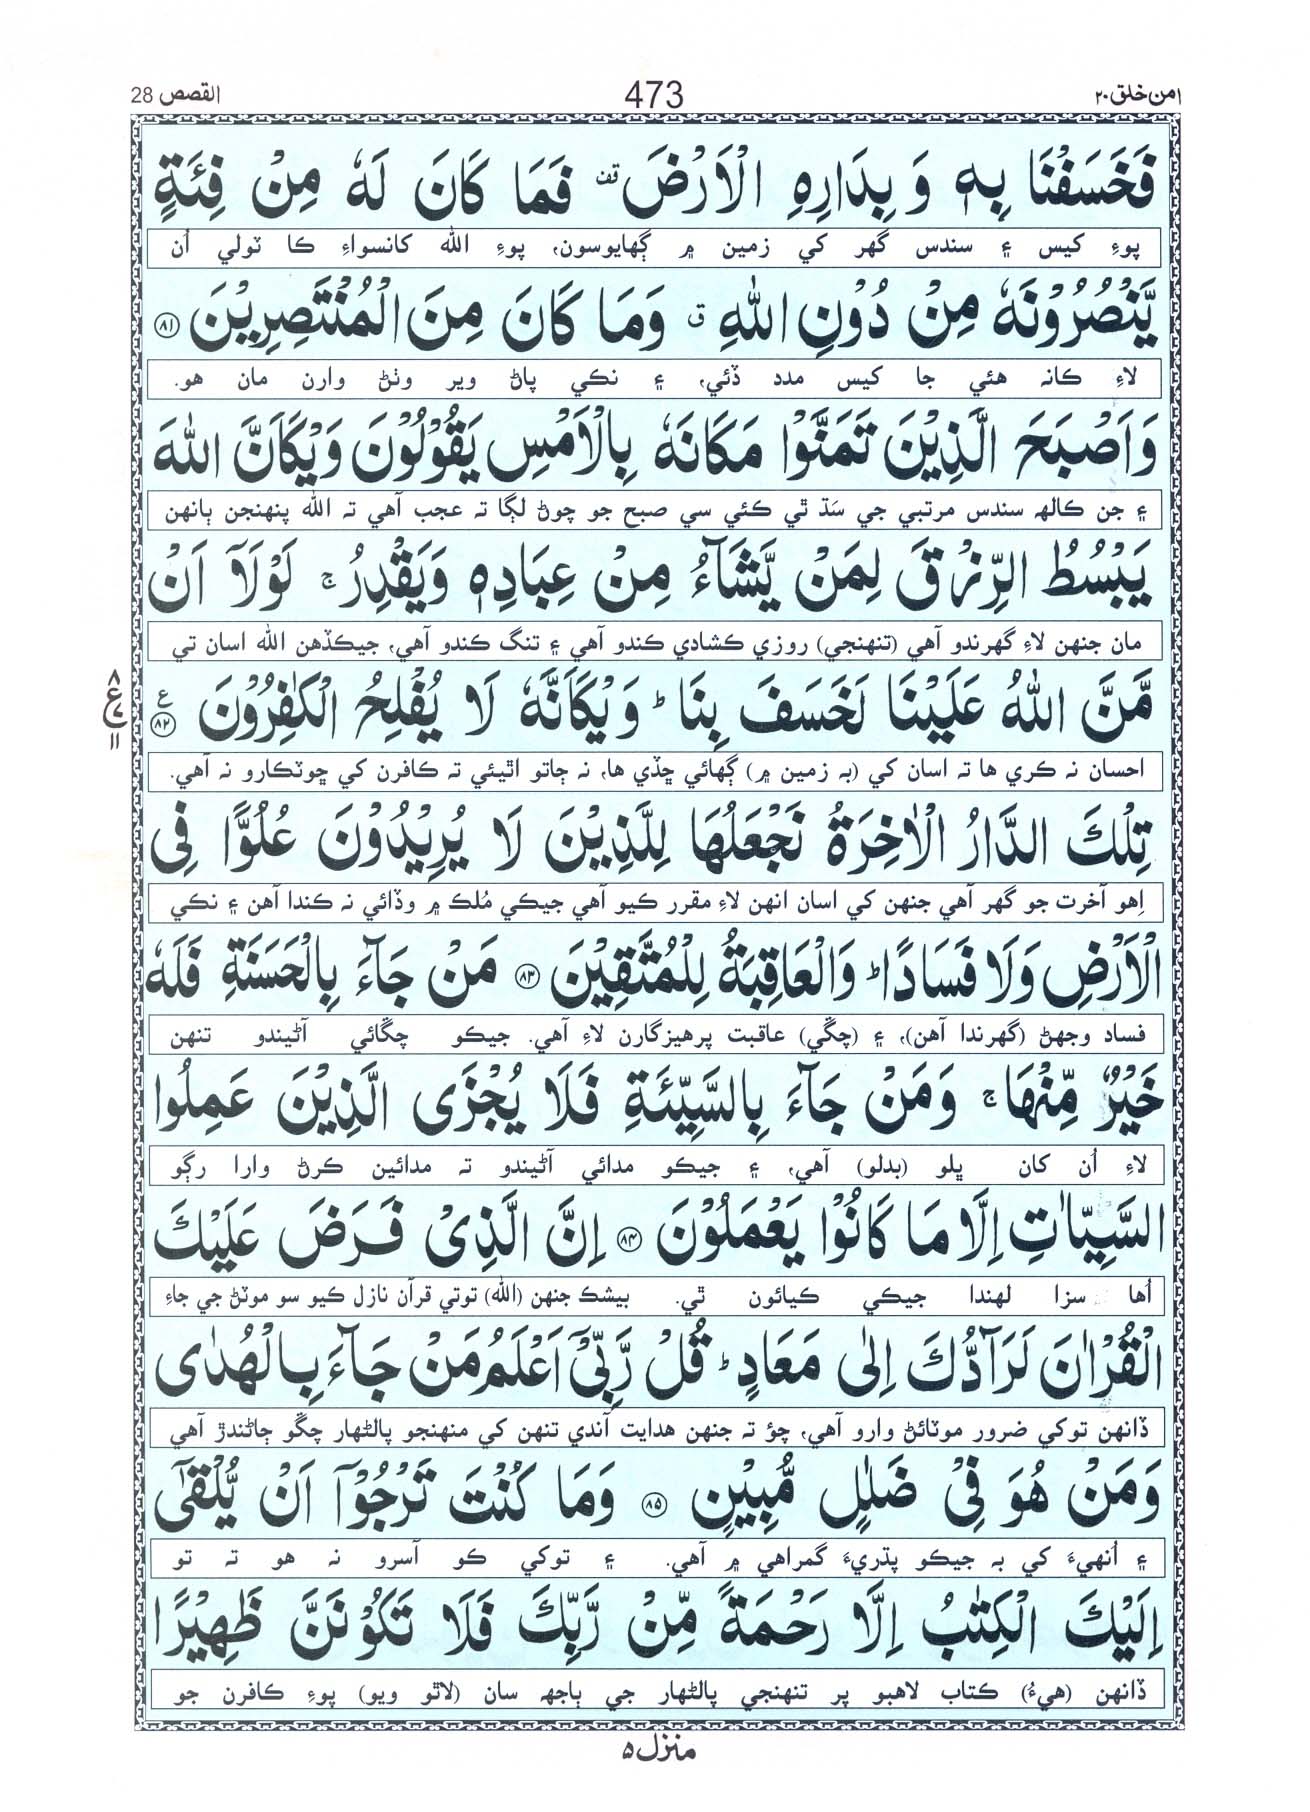 امن خلق ۲۰ 473 القصص 28
فَخَسَفْنَا بِهٖ وَ بِدَارِهِ الْاَرْضَ ۟ قف فَمَا كَانَ لَهٗ مِنْ فِئَةٍ
پوءِ کيس ۽ سندس گھر کي زمين ۾ ڳھايوسون، پوءِ الله کانسواءِ ڪا ٽولي اُن
يَّنْصُرُوْنَهٗ مِنْ دُوْنِ اللّٰهِ ق وَمَا كَانَ مِنَ الْمُنْتَصِرِيْنَ ﴿۸۱﴾
لاءِ ڪانہ هئي جا کيس مدد ڏئي، ۽ نڪي پاڻ وير وٺڻ وارن مان هو.
وَاَصْبَحَ الَّذِيْنَ تَمَنَّوْا مَكَانَهٗ بِالْاَمْسِ يَقُوْلُوْنَ وَيْكَاَنَّ اللّٰهَ
۽ جن ڪالھہ سندس مرتبي جي سَڌ ٿي ڪئي سي صبح جو چوڻ لڳا تہ عجب آهي تہ الله پنھنجن ٻانھن
يَبْسُطُ الرِّزْقَ لِمَنْ يَّشَآءُ مِنْ عِبَادِهٖ وَيَقْدِرُ ۚ لَوْلَاۤ اَنْ
مان جنھن لاءِ گھرندو آهي (تنھنجي) روزي ڪشادي ڪندو آهي ۽ تنگ ڪندو آهي، جيڪڏهن الله اسان تي
مَّنَّ اللّٰهُ عَلَيْنَا لَخَسَفَ بِنَا ؕ وَيْكَاَنَّهٗ لَا يُفْلِحُ الْكٰفِرُوْنَ ﴿۸۲﴾ ع
۸ ع ۷ ۱۱
احسان نہ ڪري ها تہ اسان کي (بہ زمين ۾) ڳھائي ڇڏي ها، نہ ڄاتو اٿيئي تہ ڪافرن کي ڇوٽڪارو نہ آهي.
تِلْكَ الدَّارُ الْاٰخِرَةُ نَجْعَلُهَا لِلَّذِيْنَ لَا يُرِيْدُوْنَ عُلُوًّا فِى
اِهو آخرت جو گھر آهي جنھن کي اسان انھن لاءِ مقرر ڪيو آهي جيڪي مُلڪ ۾ وڏائي نہ ڪندا آهن ۽ نڪي
الْاَرْضِ وَلَا فَسَادًا ؕ وَالْعَاقِبَةُ لِلْمُتَّقِيْنَ ﴿۸۳﴾ مَنْ جَآءَ بِالْحَسَنَةِ فَلَهٗ
فساد وجھڻ (گھرندا آهن)، ۽ (چڱي) عاقبت پرهيزگارن لاءِ آهي. جيڪو چڱائي آڻيندو تنھن
خَيْرٌ مِّنْهَا ۚ وَمَنْ جَآءَ بِالسَّيِّئَةِ فَلَا يُجْزَى الَّذِيْنَ عَمِلُوا
لاءِ اُن کان ڀلو (بدلو) آهي، ۽ جيڪو مدائي آڻيندو تہ مدائين ڪرڻ وارا رڳو
السَّيِّاٰتِ اِلَّا مَا كَانُوْا يَعْمَلُوْنَ ﴿۸۴﴾ اِنَّ الَّذِىْ فَرَضَ عَلَيْكَ
اُها سزا لھندا جيڪي ڪيائون ٿي. بيشڪ جنھن (الله) توتي قرآن نازل ڪيو سو موٽڻ جي جاءِ
الْقُرْاٰنَ لَرَآدُّكَ اِلٰى مَعَادٍ ؕ قُلْ رَّبِّىْۤ اَعْلَمُ مَنْ جَآءَ بِالْهُدٰى
ڏانھن توکي ضرور موٽائڻ وارو آهي، چؤ تہ جنھن هدايت آندي تنھن کي منھنجو پالڻھار چڱو ڄاڻندڙ آهي
وَمَنْ هُوَ فِىْ ضَلٰلٍ مُّبِيْنٍ ﴿۸۵﴾ وَمَا كُنْتَ تَرْجُوْۤا اَنْ يُّلْقٰٓى
۽ اُنھيءَ کي بہ جيڪو پڌريءَ گمراهي ۾ آهي. ۽ توکي ڪو آسرو نہ هو تہ تو
اِلَيْكَ الْكِتٰبُ اِلَّا رَحْمَةً مِّنْ رَّبِّكَ فَلَا تَكُوْنَنَّ ظَهِيْرًا
ڏانھن (هيءُ) ڪتاب لاهبو پر تنھنجي پالڻھار جي ٻاجھہ سان (لاٿو ويو) پوءِ ڪافرن جو
منزل ۵